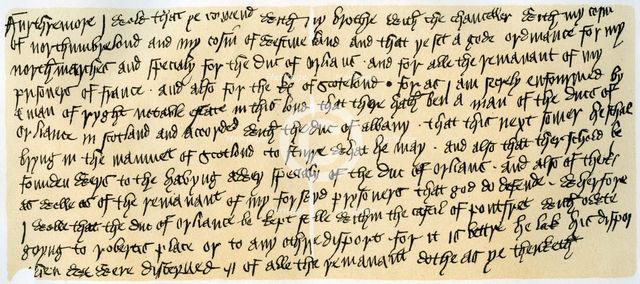 Furthremore I wole that ye comend with my brothre with the chanceller with my cosin
of northumbrelond and my cosin of westmerland and that ye set a gode ordinance for my
north marches and specialy for the duc of orlians . and for alle the remanant of my
prisoners of france . and also for the k. of scotelond . for as I am secrely enfourmed by
a man of ryght notable estate in this lond that there hath ben a man of the ducs of
orliance in scotland and accorded with the duc of albany . that this next somer he schal
bryng in the mamuet of scotlond to sturre what he may . and also that ther schold be
founden weys to the havyng awey specialy of the duc of orlians . and also of the k.
as welle as of the remanant of my forsayd prisoners that god do defende . wherfore
I wolle that the duc of orliance be kept stille withyn the castil of pontfret with owte
goyng to robertis place or to any othre disport . for it is bettre he lak his disport
then we were disceyved . of alle the remanant dothe as ye thenketh